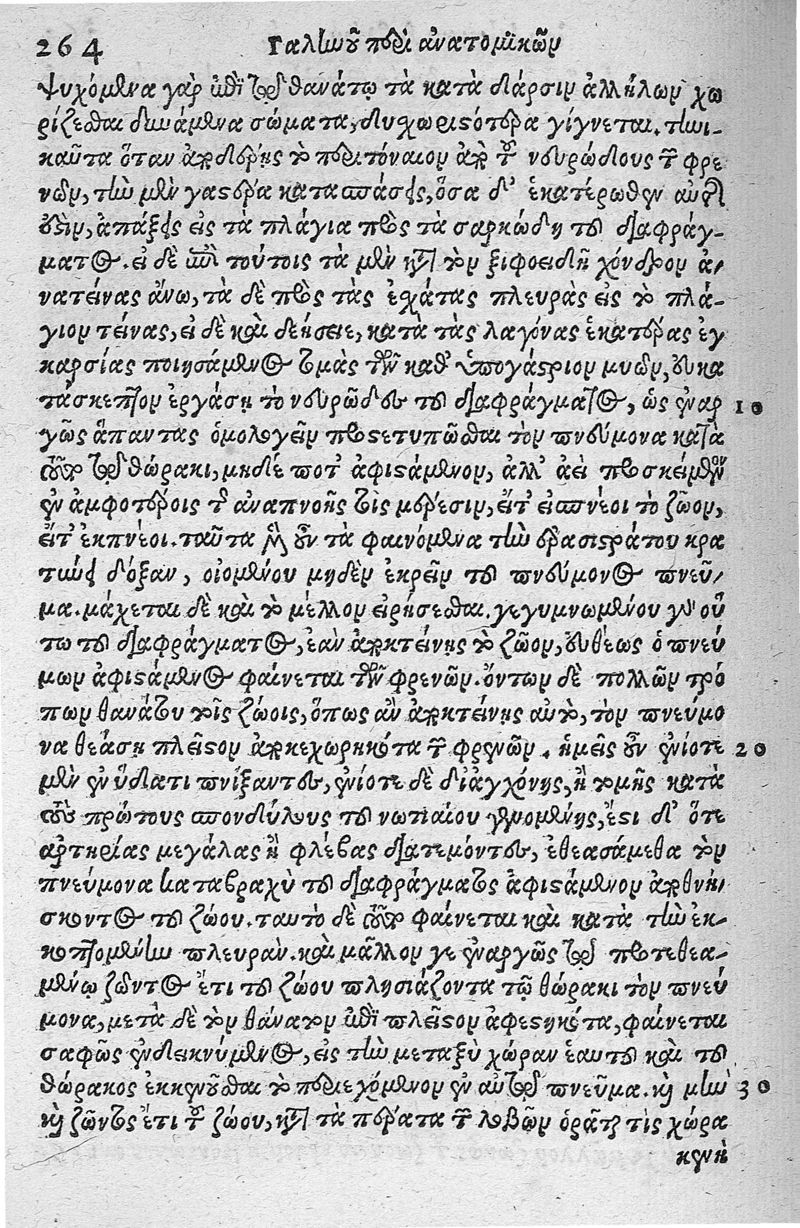 264 Γαλίνοῦ περὶ ἀνατομικῶν
ψυχόμενα γὰρ ἐπὶ τῷ θανάτῳ τὰ κατὰ διάρσιν ἀλλήλων χω
ρίζεσθαι δυνάμενα σώματα, δυσχωριστότερα γίγνεται. τηνι-
καῦτα ὅταν ἀποδέρῃς τὸ περιτόναιον ἀπὸ τοῦ νευρώδους τῶν φρε
νῶν, τὴν μὲν γαστέρα κατασπάσεις, ὅσα δ' ἑκατέρωθεν αὐτῆς
ἐστιν, ἀπάξεις εἰς τὰ πλάγια πρὸς τὰ σαρκώδη τοῦ διαφράγ-
ματος. εἰ δὲ ἐπὶ τούτοις τὰ μὲν κατὰ τὸν ξιφοειδῆ χόνδρον ἀ-
νατείνας ἄνω, τὰ δὲ πρὸς τὰς ἐσχάτας πλευρὰς εἰς τὸ πλά-
γιον τείνας, εἰ δὲ καὶ δεήσειε, κατὰ τὰς λαγόνας ἑκατέρας ἐγ
καρσίας ποιησάμενος τομὰς τῶν καθ' ὑπογάστριον μυῶν, εὐκα
τάσκεπτον ἐργάσῃ τὸ νευρῶδες τοῦ διαφράγματος, ὡς ἐναρ 10
γῶς ἅπαντας ὁμολογεῖν προστετυπῶσθαι τὸν πνεύμονα κατὰ
τοῦτο τῷ θώρακι, μηδέποτ' ἀφιστάμενον, ἀλλ' ἀεὶ προσκείμενον
ἐν ἀμφοτέροις τῆς ἀναπνοῆς τοῖς μέρεσιν, εἴτ' εἰσπνέοι τὸ ζῶον,
εἴτ' ἐκπνέοι. ταῦτα μὲν οὖν τὰ φαινόμενα τὴν ἐρασιστράτου κρα
τύνει δόξαν, οἰομένου μηδὲν ἐκρεῖν τοῦ πνεύμονος πνεῦ-
μα. μάχεται δὲ καὶ τὸ μέλλον εἰρήσεσθαι. γεγυμνωμένου γὰρ οὕ
τω τοῦ διαφράγματος, ἐὰν ἀποκτείνῃς τὸ ζῶον, εὐθέως ὁ πνεύ
μων ἀφιστάμενος φαίνεται τῶν φρενῶν. ὄντων δὲ πολλῶν τρό
πων θανάτου τοῖς ζώοις, ὅπως ἂν ἀποκτείνῃς αὐτό, τὸν πνεύμο
να θεάσῃ πλεῖστον ἀποκεχωρηκότα τῶν φρενῶν. ἡμεῖς οὖν ἐνίοτε 20
μὲν ἐν ὕδατι πνίξαντες, ἐνίοτε δὲ δι' ἀγχόνης, ἢ τομῆς κατὰ
τοὺς πρώτους σπονδύλους τοῦ νωτιαίου γενομένης, ἔστι δ' ὅτε
ἀρτηρίας μεγάλας ἢ φλέβας διατεμόντες, ἐθεασάμεθα τὸν
πνεύμονα καταβραχὺ τοῦ διαφράγματος ἀφιστάμενον ἀποθνή-
σκοντος τοῦ ζώου. ταυτὸ δὲ τοῦτο φαίνεται καὶ κατὰ τὴν ἐκ-
κοπτομένην πλευράν. καὶ μᾶλλόν γε ἐναργῶς τῷ προτεθεα-
μένῳ ζῶντος ἔτι τοῦ ζώου πλησιάζοντα τῷ θώρακι τὸν πνεύ
μονα, μετὰ δὲ τὸν θάνατον ἐπὶ πλεῖστον ἀφεστηκότα, φαίνεται
σαφῶς ἐνδεικνύμενος, εἰς τὴν μεταξὺ χώραν ἑαυτοῦ καὶ τοῦ
θώρακος ἐκκενοῦσθαι τὸ περιεχόμενον ἐν αὐτῷ πνεῦμα. καὶ μὴν 30
καὶ ζῶντος ἔτι τοῦ ζώου, κατὰ τὰ πέρατα τῶν λοβῶν ὁρᾶταί τις χώρα
κενὴ